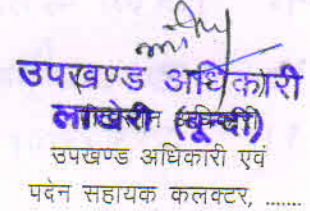 उपखण्ड अधिकारी
लाखेरी (बून्दी)
उपखण्ड अधिकारी एवं
पदेन सहायक कलक्टर, .......